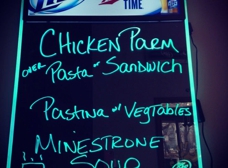 TIME
CHICKEN PARM
OVER PASTA or SANDWICH
PASTINA w/ VEGTABLES
MINESTRONE
SOUP